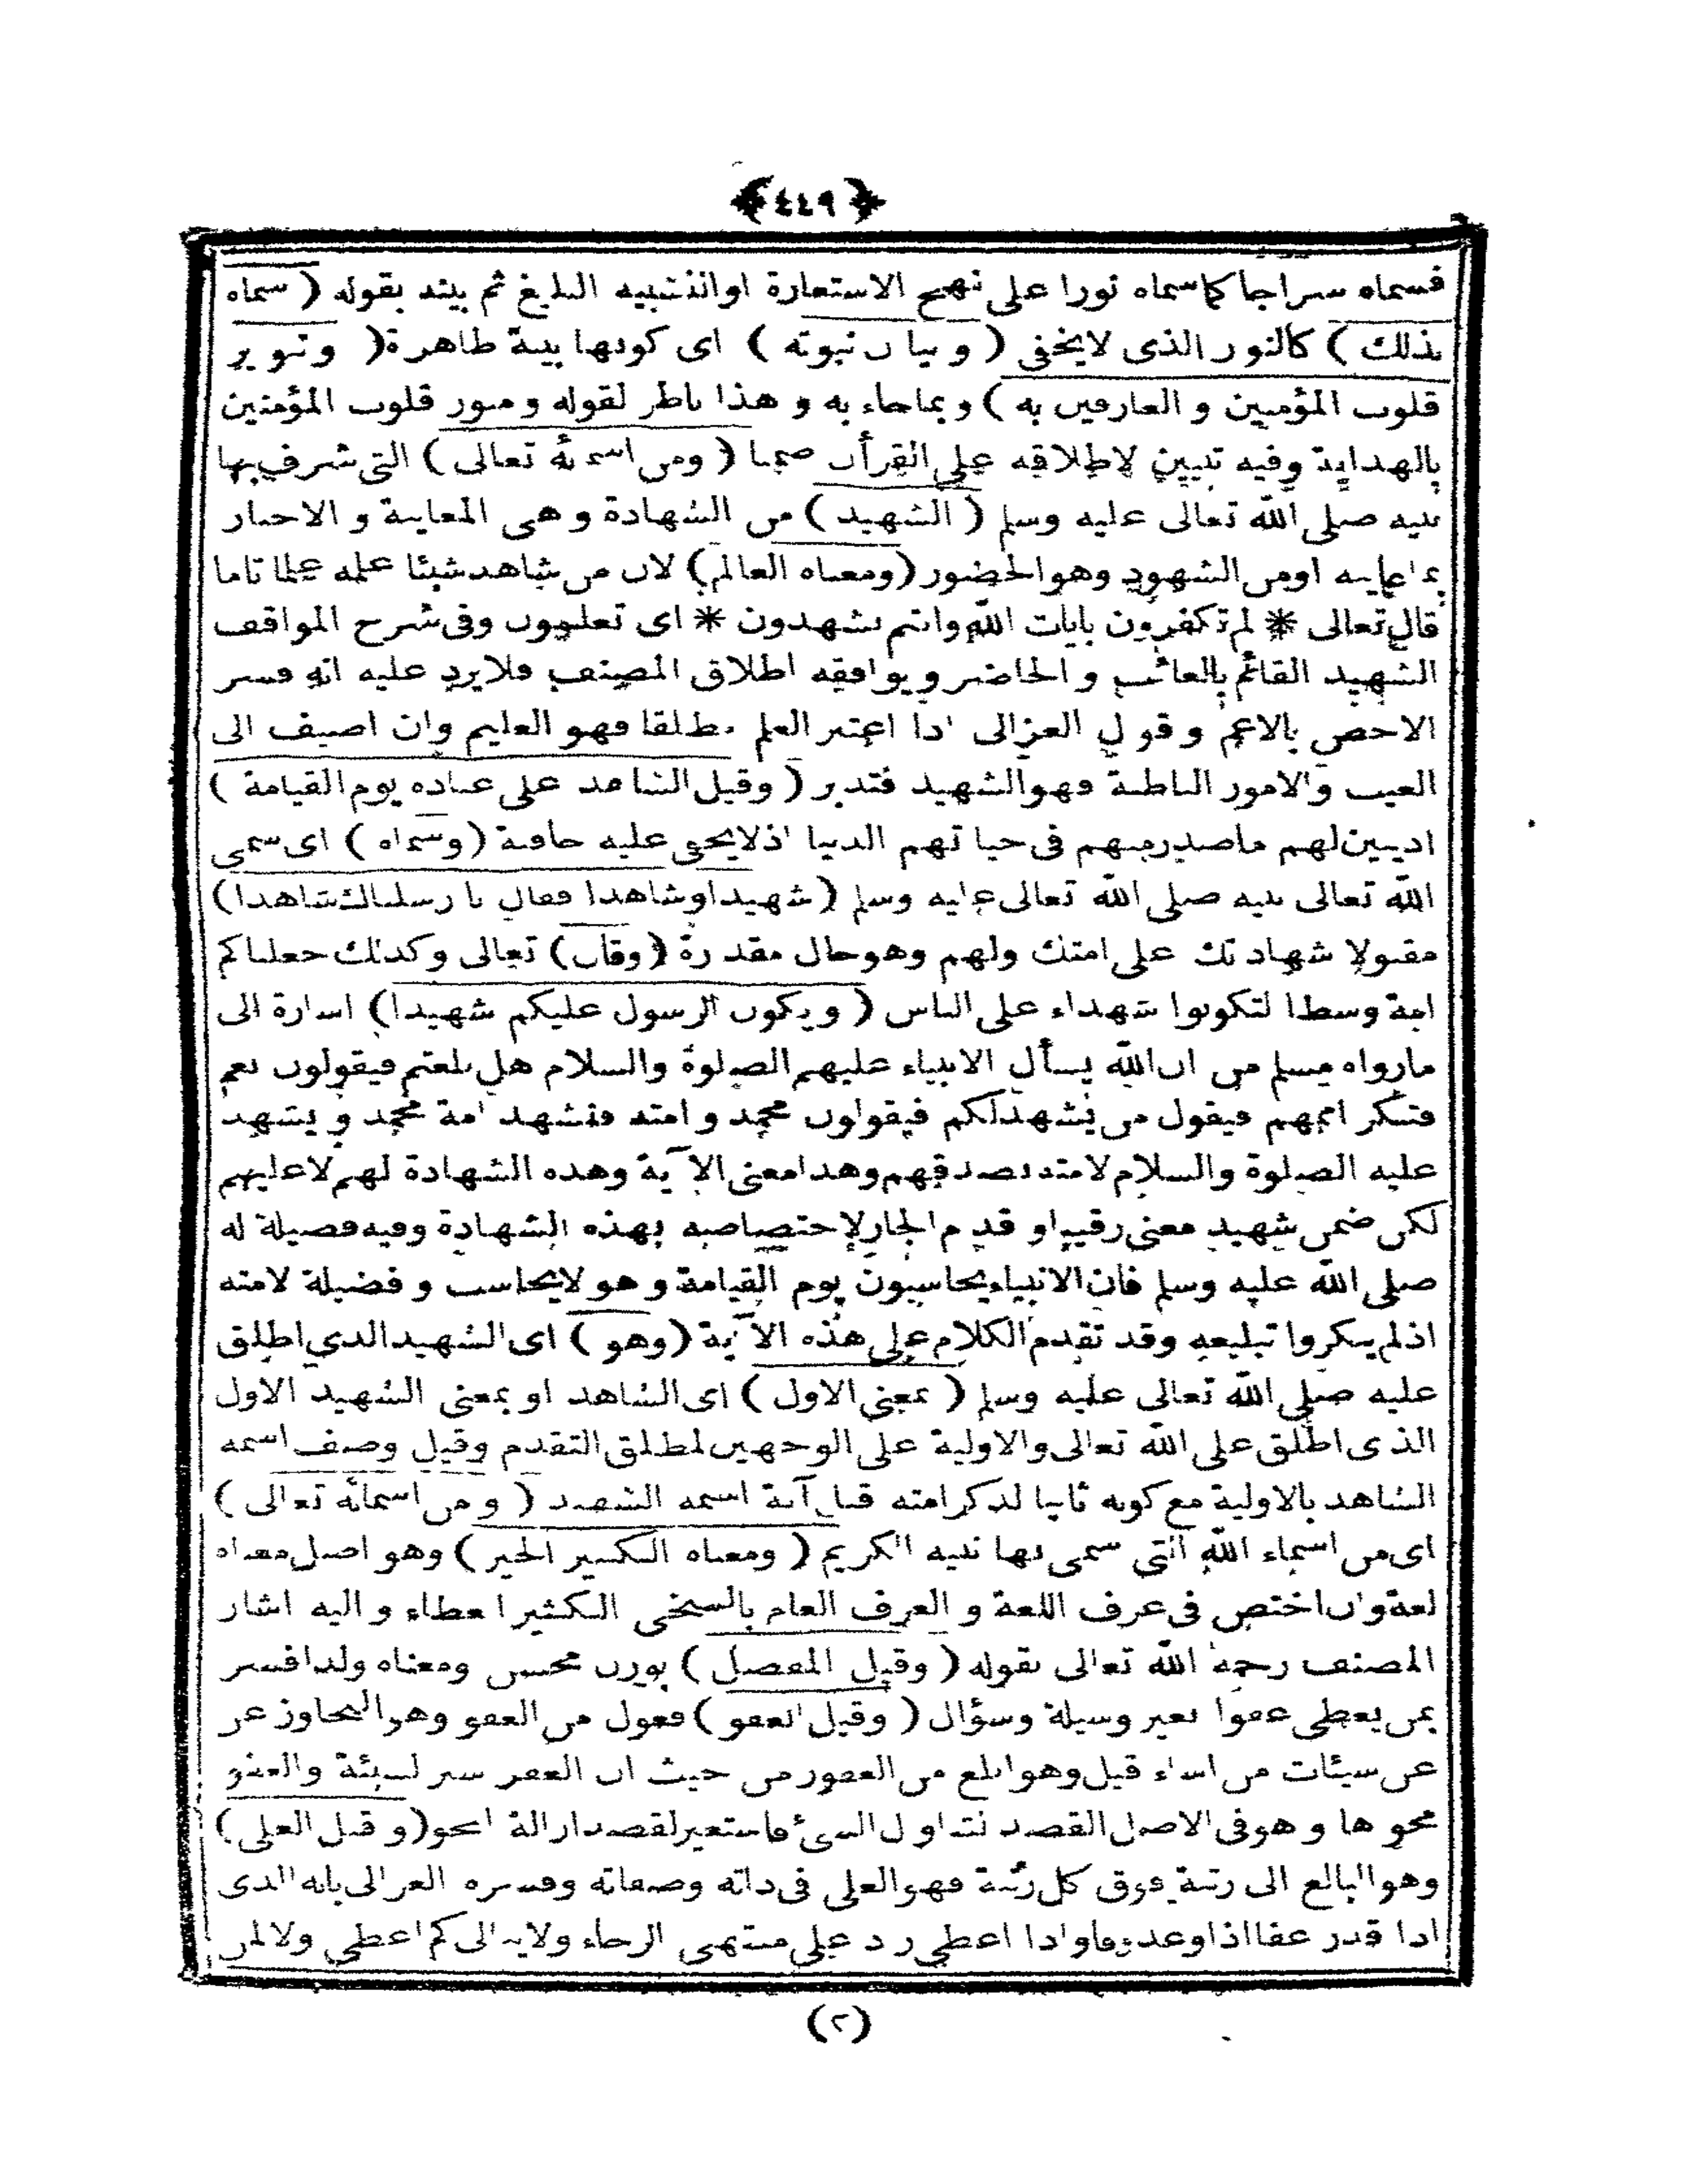 ﴿٤٤٩﴾
فسماه سراجا كما سماه نورا على نهج الاستعارة او التشبيه البليغ ثم بينه بقوله ( سماه
بذلك ) كالنور الذى لا يخفى ( و بيان نبوته ) اى كونها بينة ظاهرة ( وتنوير
قلوب المؤمنين و العارفين به ) و بما جاء به و هذا ناظر لقوله و منور قلوب المؤمنين
بالهداية وفيه تبيين لاطلاقه على القرأن ضمنا ( ومن اسمائه تعالى ) التى شرف بها
نبيه صلى الله تعالى عليه وسلم ( الشهيد ) من الشهادة و هى المعاينة و الاخبار
بما عاينه اومن الشهود وهو الحضور ( ومعناه العالم ) لان من شاهد شيئا علمه علما تاما
قال تعالى * لم تكفرون بايات الله وانتم تشهدون * اى تعلمون وفى شرح المواقف
الشهيد القائم بالغائب و الحاضر و يوافقه اطلاق المصنف فلا يرد عليه انه فسر
الاخص بالاعم و قول الغزالى اذا اعتبر العلم مطلقا فهو العليم وان اضيف الى
الغيب والامور الباطنة فهو الشهيد فتدبر ( وقيل الشاهد على عباده يوم القيامة )
اذ يبين لهم ما صدر منهم فى حياتهم الدنيا اذ لا يخفى عليه خافية ( وسماه ) اى سمى
الله تعالى نبيه صلى الله تعالى عليه وسلم ( شهيدا وشاهدا فقال انا ارسلناك شاهدا )
مقبولا شهادتك على امتك ولهم وهو حال مقدرة ( وقال ) تعالى وكذلك جعلناكم
امة وسطا لتكونوا شهداء على الناس ( ويكون الرسول عليكم شهيدا ) اشارة الى
مارواه مسلم من ان الله يسأل الانبياء عليهم الصلوة والسلام هل بلغتم فيقولون نعم
فتنكر اممهم فيقول من يشهد لكم فيقولون محمد و امته فتشهد امة محمد و يشهد
عليه الصلوة والسلام لامته بصدقهم وهذا معنى الآية وهذه الشهادة لهم لا عليهم
لكن ضمن شهيد معنى رقيب او قدم الجار لاختصاصه بهذه الشهادة وفيه فضيلة له
صلى الله عليه وسلم فان الانبياء يحاسبون يوم القيامة و هو لا يحاسب و فضيلة لامته
اذ لم ينكروا تبليغه وقد تقدم الكلام على هذه الآية ( وهو ) اى الشهيد الذى اطلق
عليه صلى الله تعالى عليه وسلم ( بمعنى الاول ) اى الشاهد او بمعنى الشهيد الاول
الذى اطلق على الله تعالى والاولية على الوجهين لمطلق التقدم وقيل وصف اسمه
الشاهد بالاولية مع كونه ثانيا لذكر امته قبل آية اسمه الشهيد ( و من اسمائه تعالى )
اى من اسماء الله التى سمى بها نبيه الكريم ( ومعناه الكثير الخير ) وهو اصل معناه
لغة وان اختص فى عرف اللغة و العرف العام بالسخى الكثير العطاء و اليه اشار
المصنف رحمه الله تعالى بقوله ( وقيل المفضل ) بوزن محسن ومعناه ولذا فسر
بمن يعطى عفوا بغير وسيلة وسؤال ( وقيل العفو ) فعول من العفو وهو التجاوز عن
عن سيئات من اساء قيل وهو ابلغ من الغفور من حيث ان الغفر ستر لسيئة والعفو
محوها و هو فى الاصل القصد لتناول الشئ فاستعير لقصد ازالة المحو ( و قيل العلى )
وهو البالغ الى رتبة فوق كل رتبة فهو العلى فى ذاته وصفاته وفسره الغزالى بانه الذى
اذا قدر عفا اذا وعد وفا واذا اعطى زاد على منتهى الرجاء ولا يبالى كم اعطى ولا لمن
(٢)